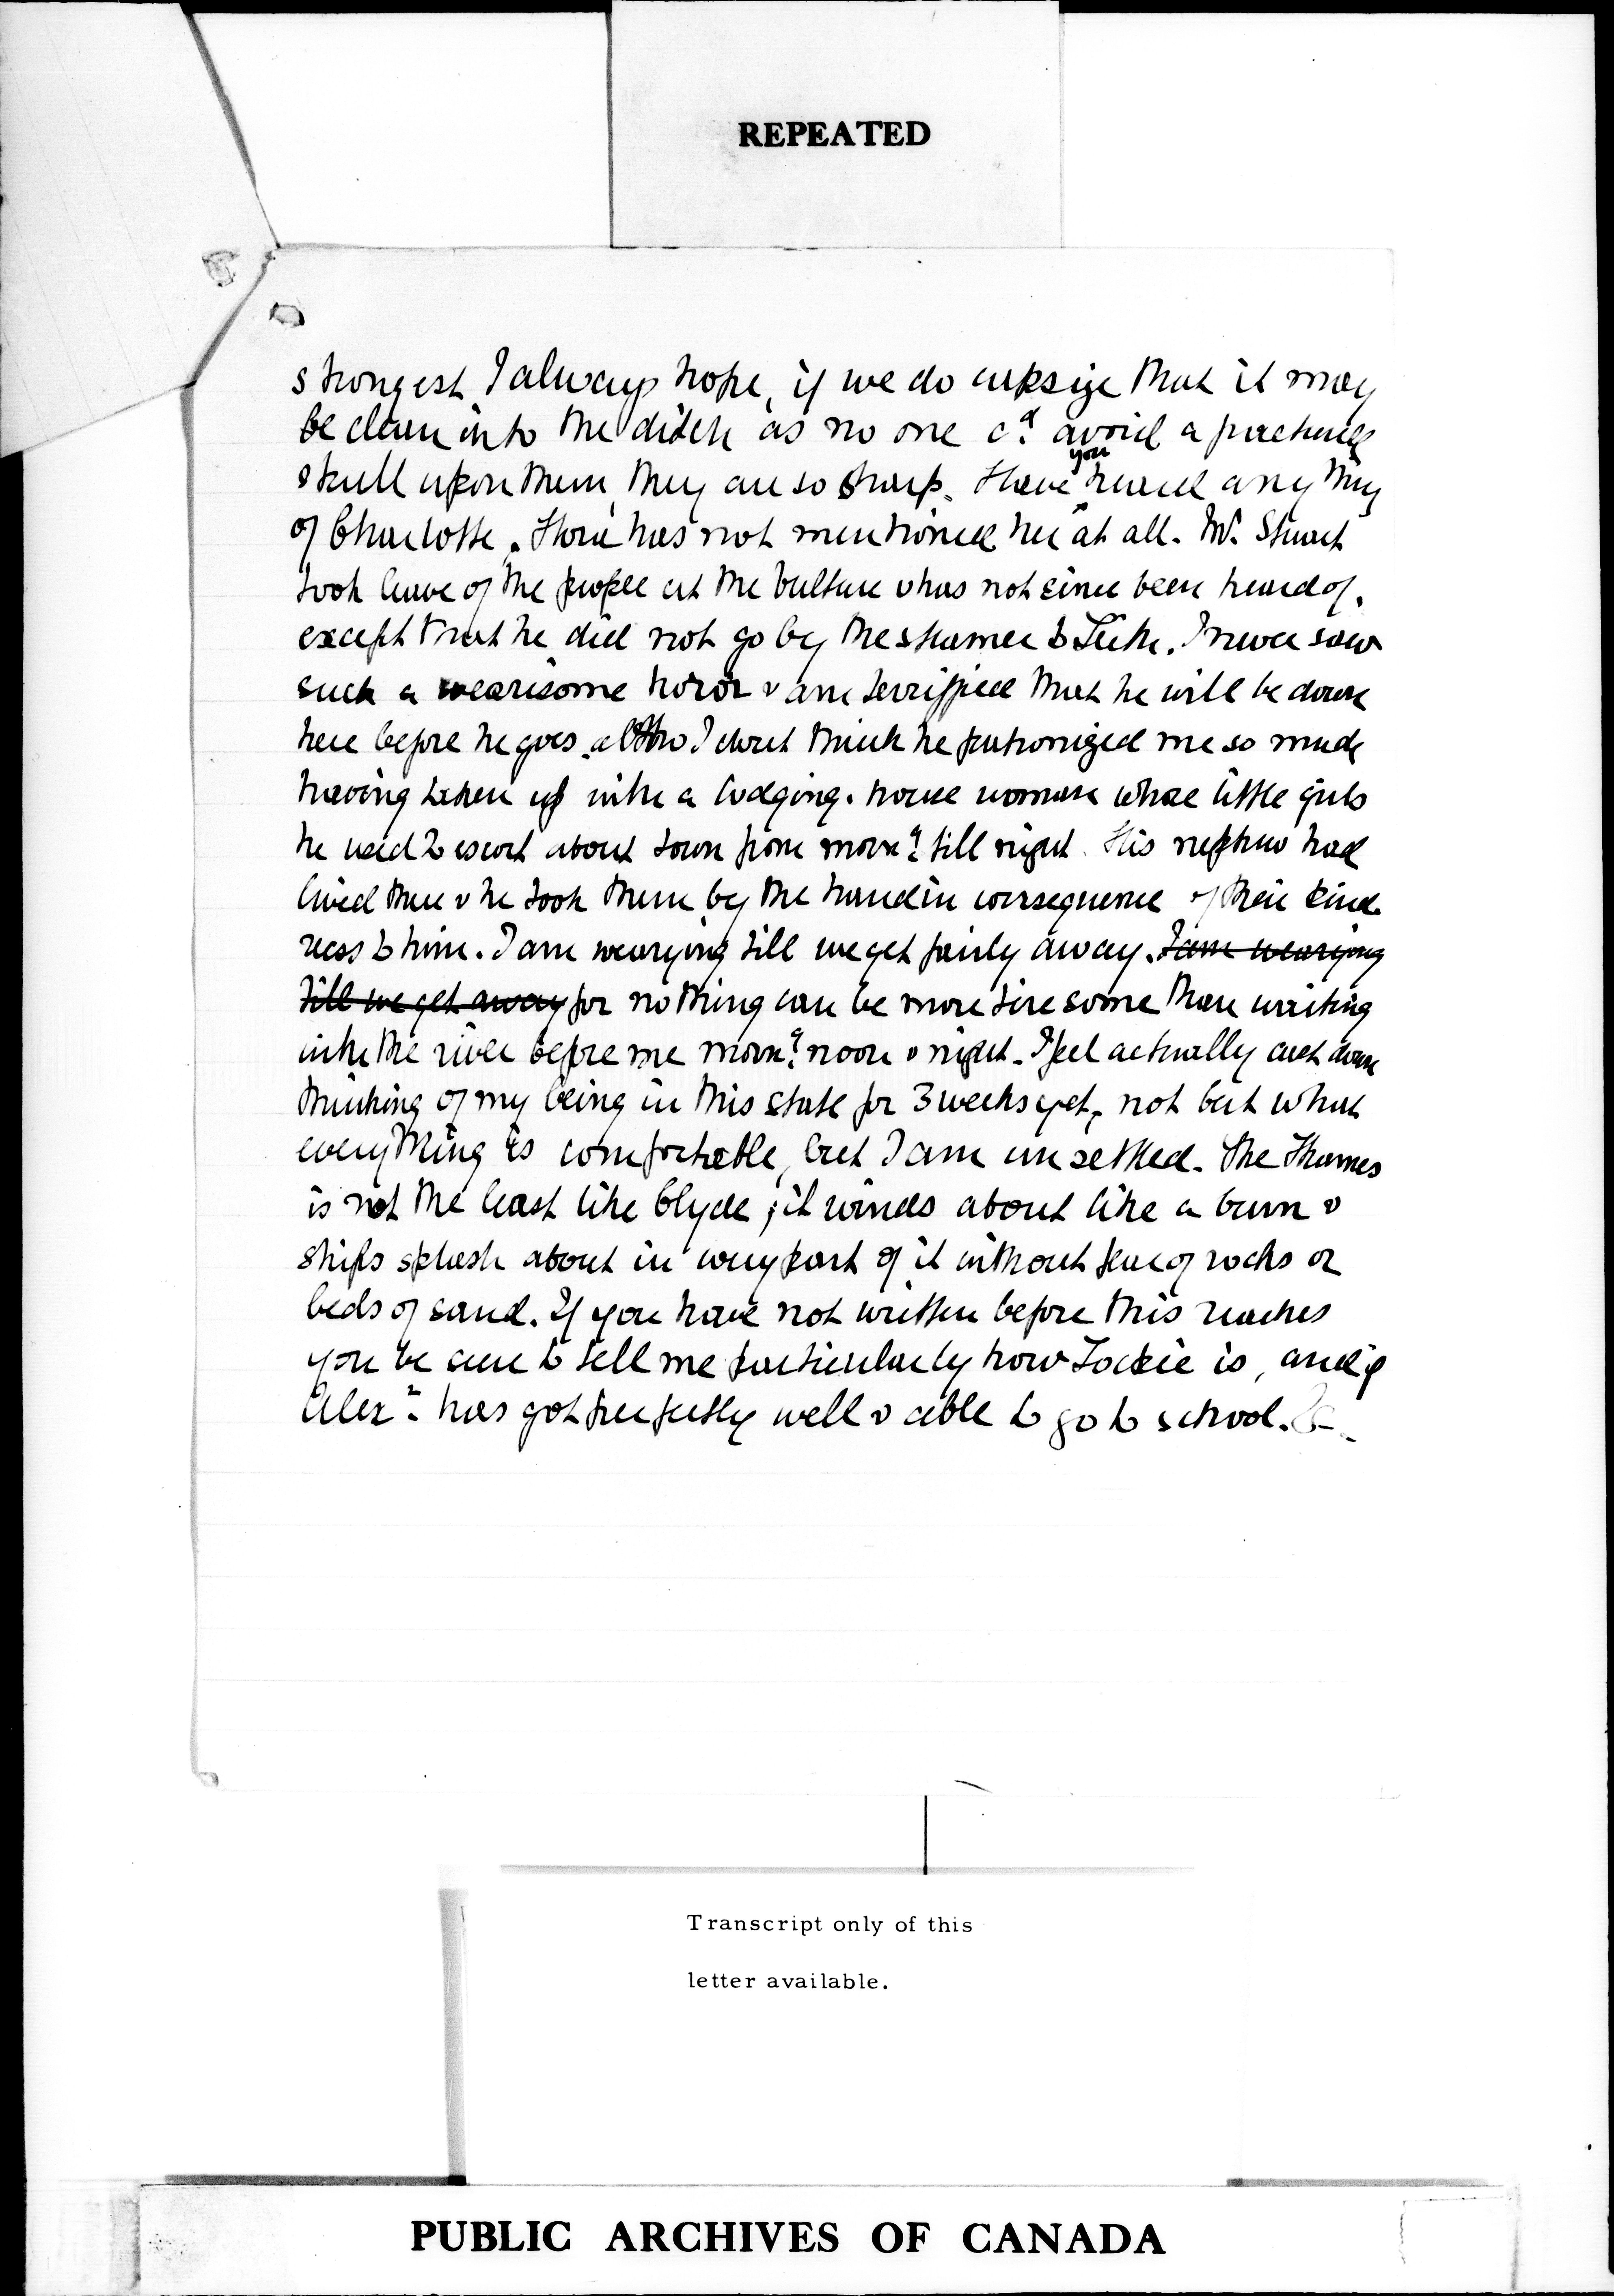 REPEATED
strongest I always hope, if we do capsize that it may
be clean into the ditch as no one cd avoid a fractured
skull upon them, they are so sharp. Have you heard any thing
of Charlotte. has not mentioned her at all. Mr. Stuart
took leave of the people at the & has not since been heard of,
except that he did not go by the steamer to Leith. I never saw
such a wearisome & am terrified that he will be down
here before he goes, altho I dont think he patronized me so much
having taken up with a lodging-house woman whose little girls
he used to escort about town from morng till night. His nephew had
lived there & he took them by the hand in consequence of their kind
ness to him. I am wearying till we get fairly away. I am wearying
till we get away for nothing can be more tiresome than waiting
with the river before me morng noon & night. I feel actually cast down
thinking of my being in this state for 3 weeks yet, not but what
everything is comfortable, but I am unsettled. The Thames
is not the least like Clyde; it winds about like a burn &
ships splash about in every part of it without fear of rocks or
beds of sand. If you have not written before this reaches
you be sure to tell me particularly how is, and if
Alexr has got perfectly well & able to go to school. &c.
Transcript only of this
letter available.
PUBLIC ARCHIVES OF CANADA